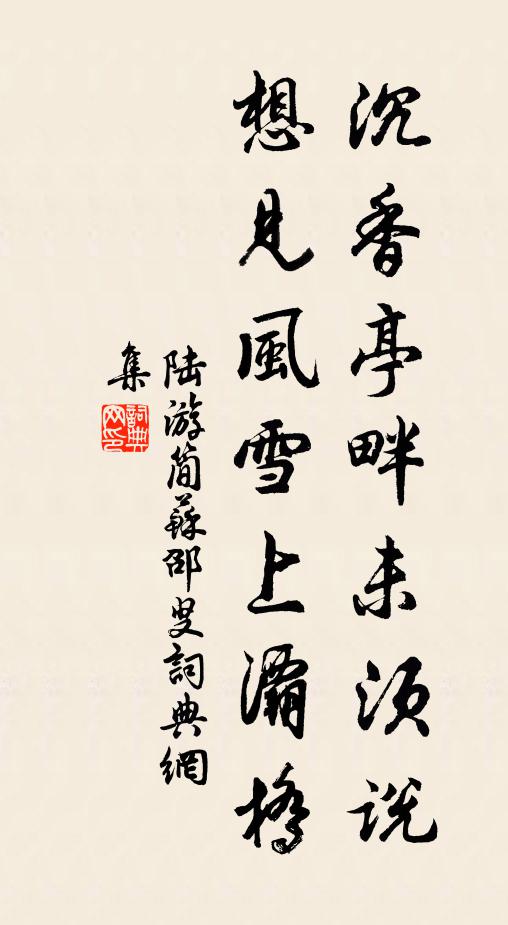 沉香亭畔未須説
想見風雪上灞橋
陆游簡蘇邵叟詞典網
集
詞典网印